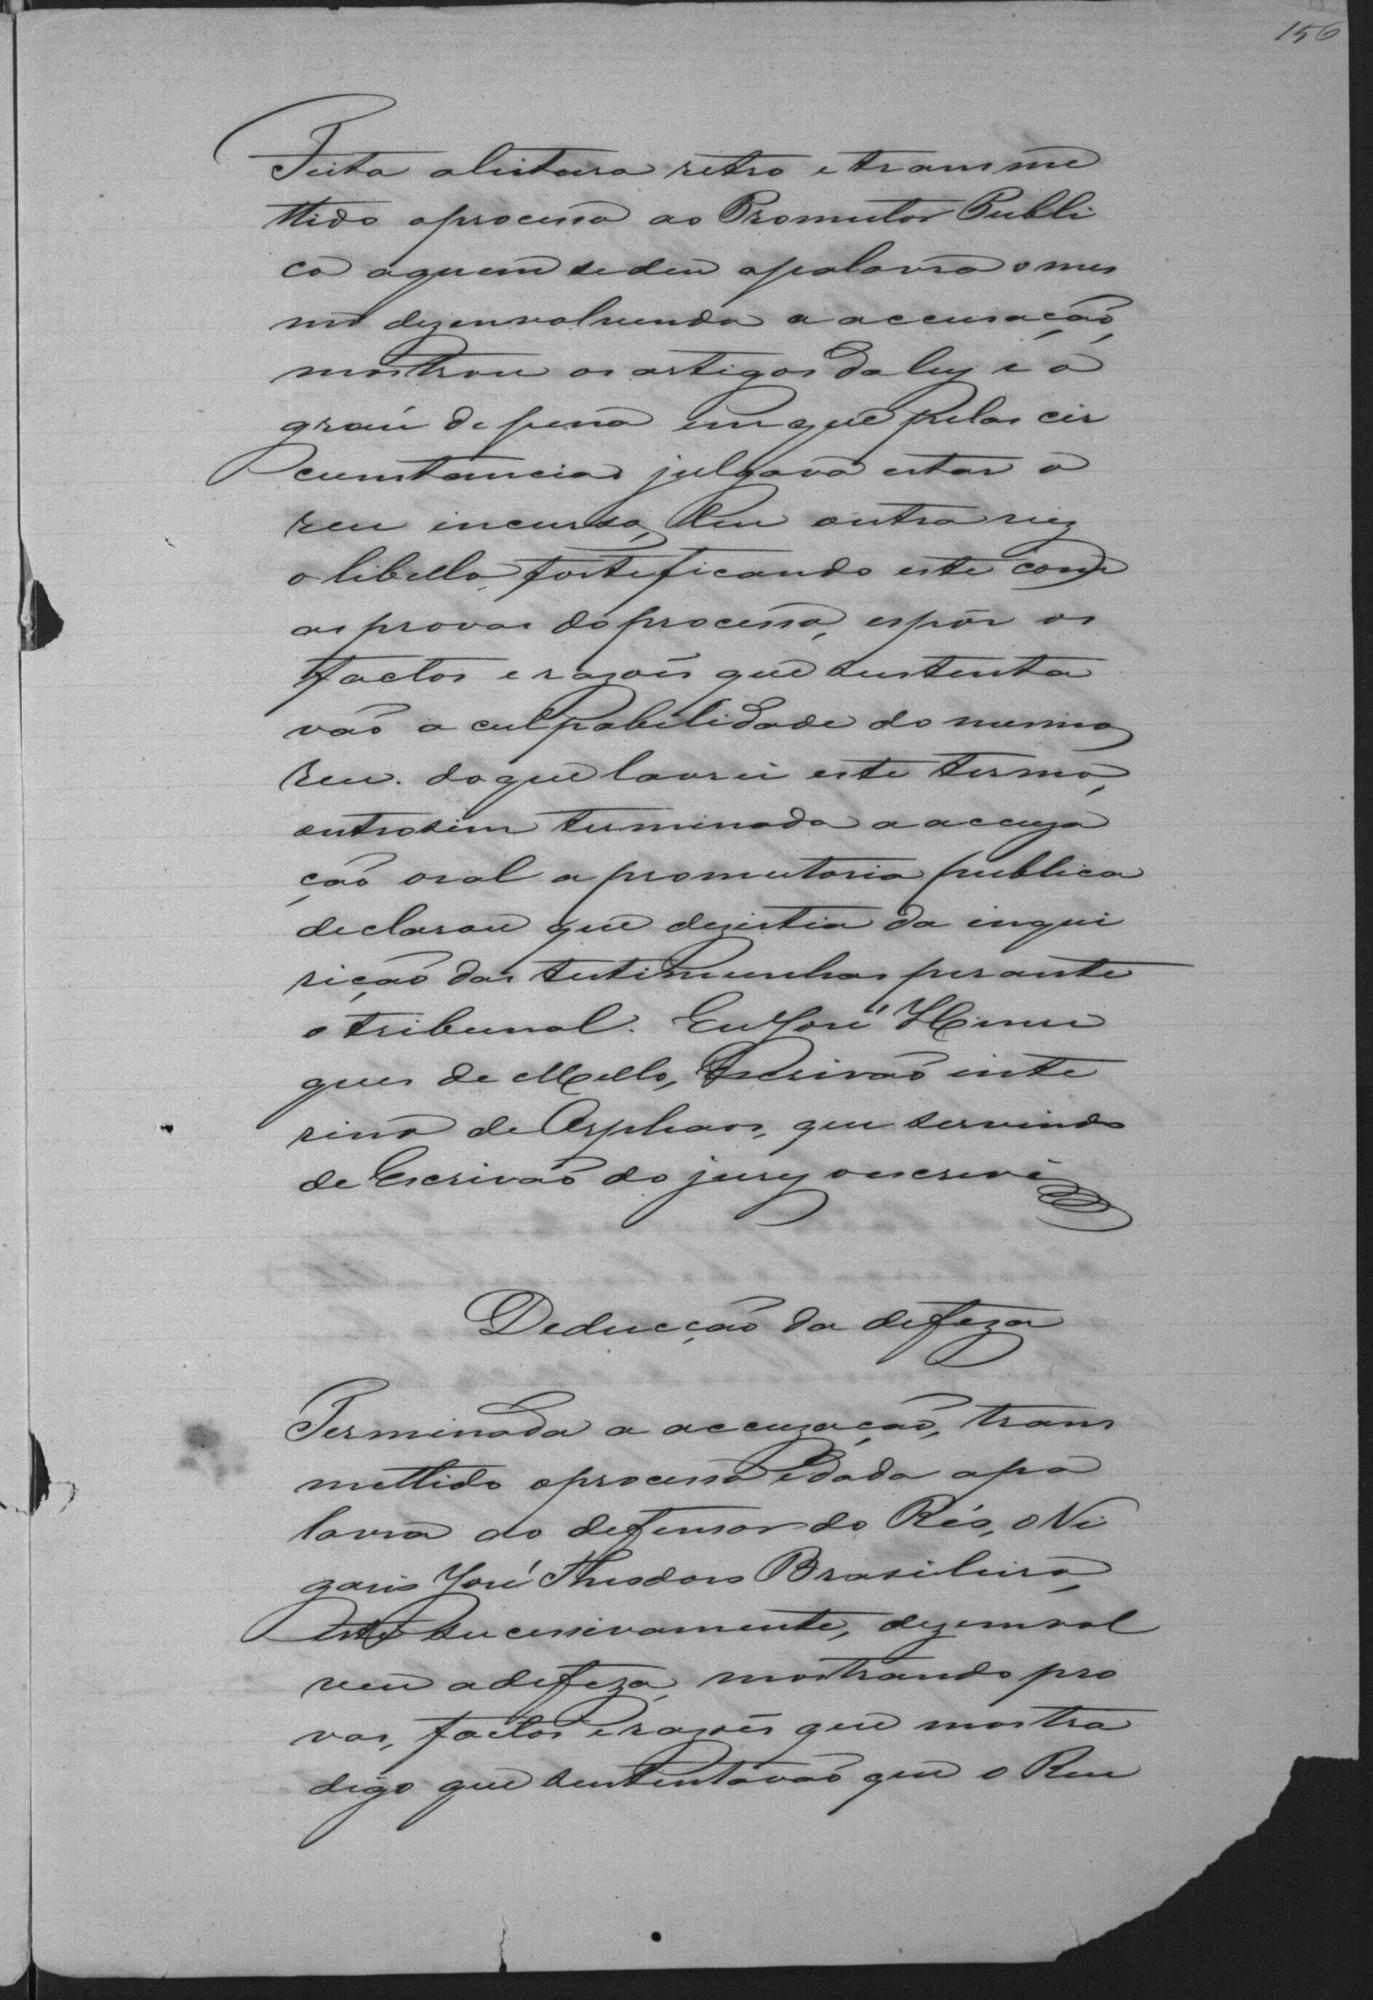 156
Feita a leitura retro e transme
ttido o processo ao Promutor Publi
co a quem se deu a palavra o mes
mo dezenvolvendo a accusação,
mostrou os artigos da ley e o
gráu de pena em que pelas cir
cunstancias julgava estar o
reu incurso, leu outra vez
o libello, fortificando este com
as provas do processo, espôr os
factos e razoēs que sustenta
vão a culpabilidade do mesmo
Reu. do que lavrei este termo,
outrosim terminada a accuza
ção oral a promutoria publica
declarou que dezistia da inqui
rição das testimunhas perante
o tribunal. Eu José Henri
ques de Mello, Escrivão inte
rino de Orphaos, que servindo
de Escrivão do jury o escrevi
Deducção da defeza
Terminada a accuzação, trans
mettido o processo e dada a pa
lavra ao defensor do Réo, o Vi
gario José Theodoro Brasileiro,
este sucessivamente, dezemvol
veu a defeza, mostrando pro
vas, factos e razoēs que mostra
digo que sustentavão que o Reu